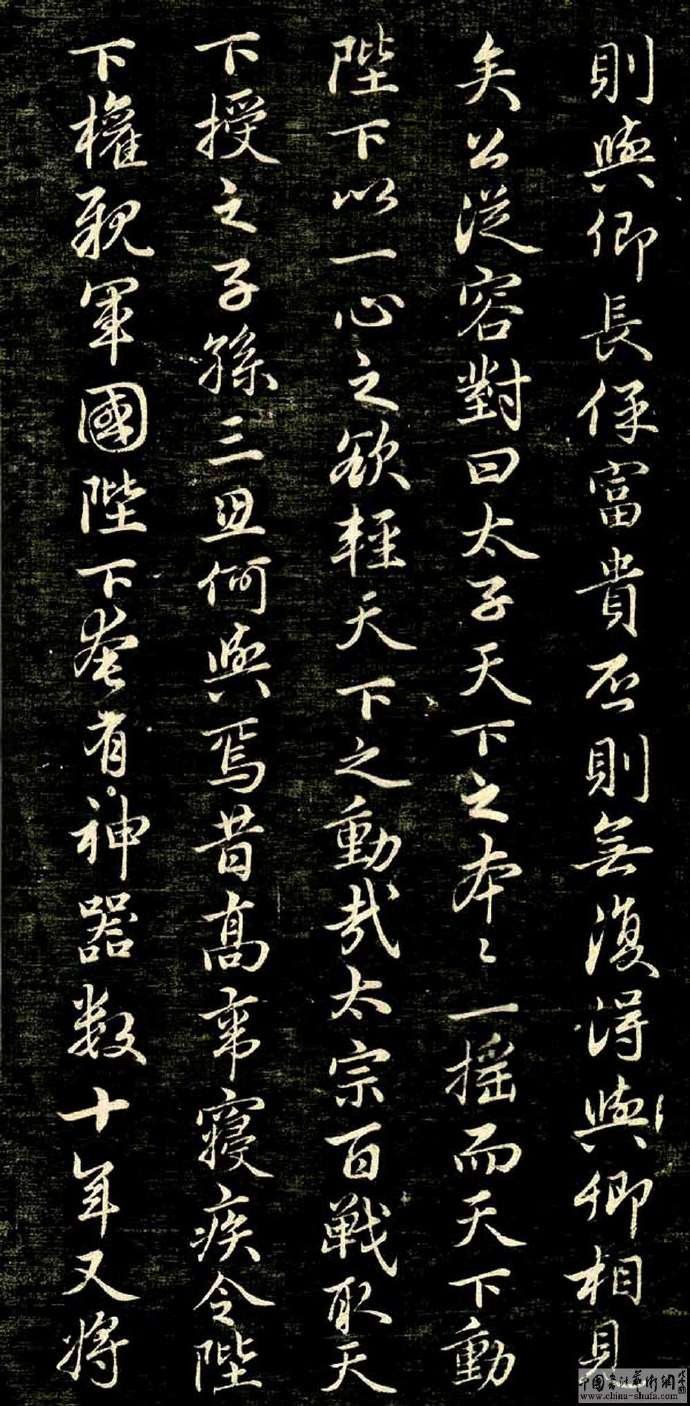 則與卿長保富貴否則無復得與卿相見
矣公從容對曰太子天下之本〻一摇而天下動
陛下以一心之欲輕天下之動哉太宗百戰取天
下授之子孫三思何與焉昔髙帝寢疾令陛
下權親軍國陛下奄有神器数十年又將
中国書法藝術網
www.china-shufa.com